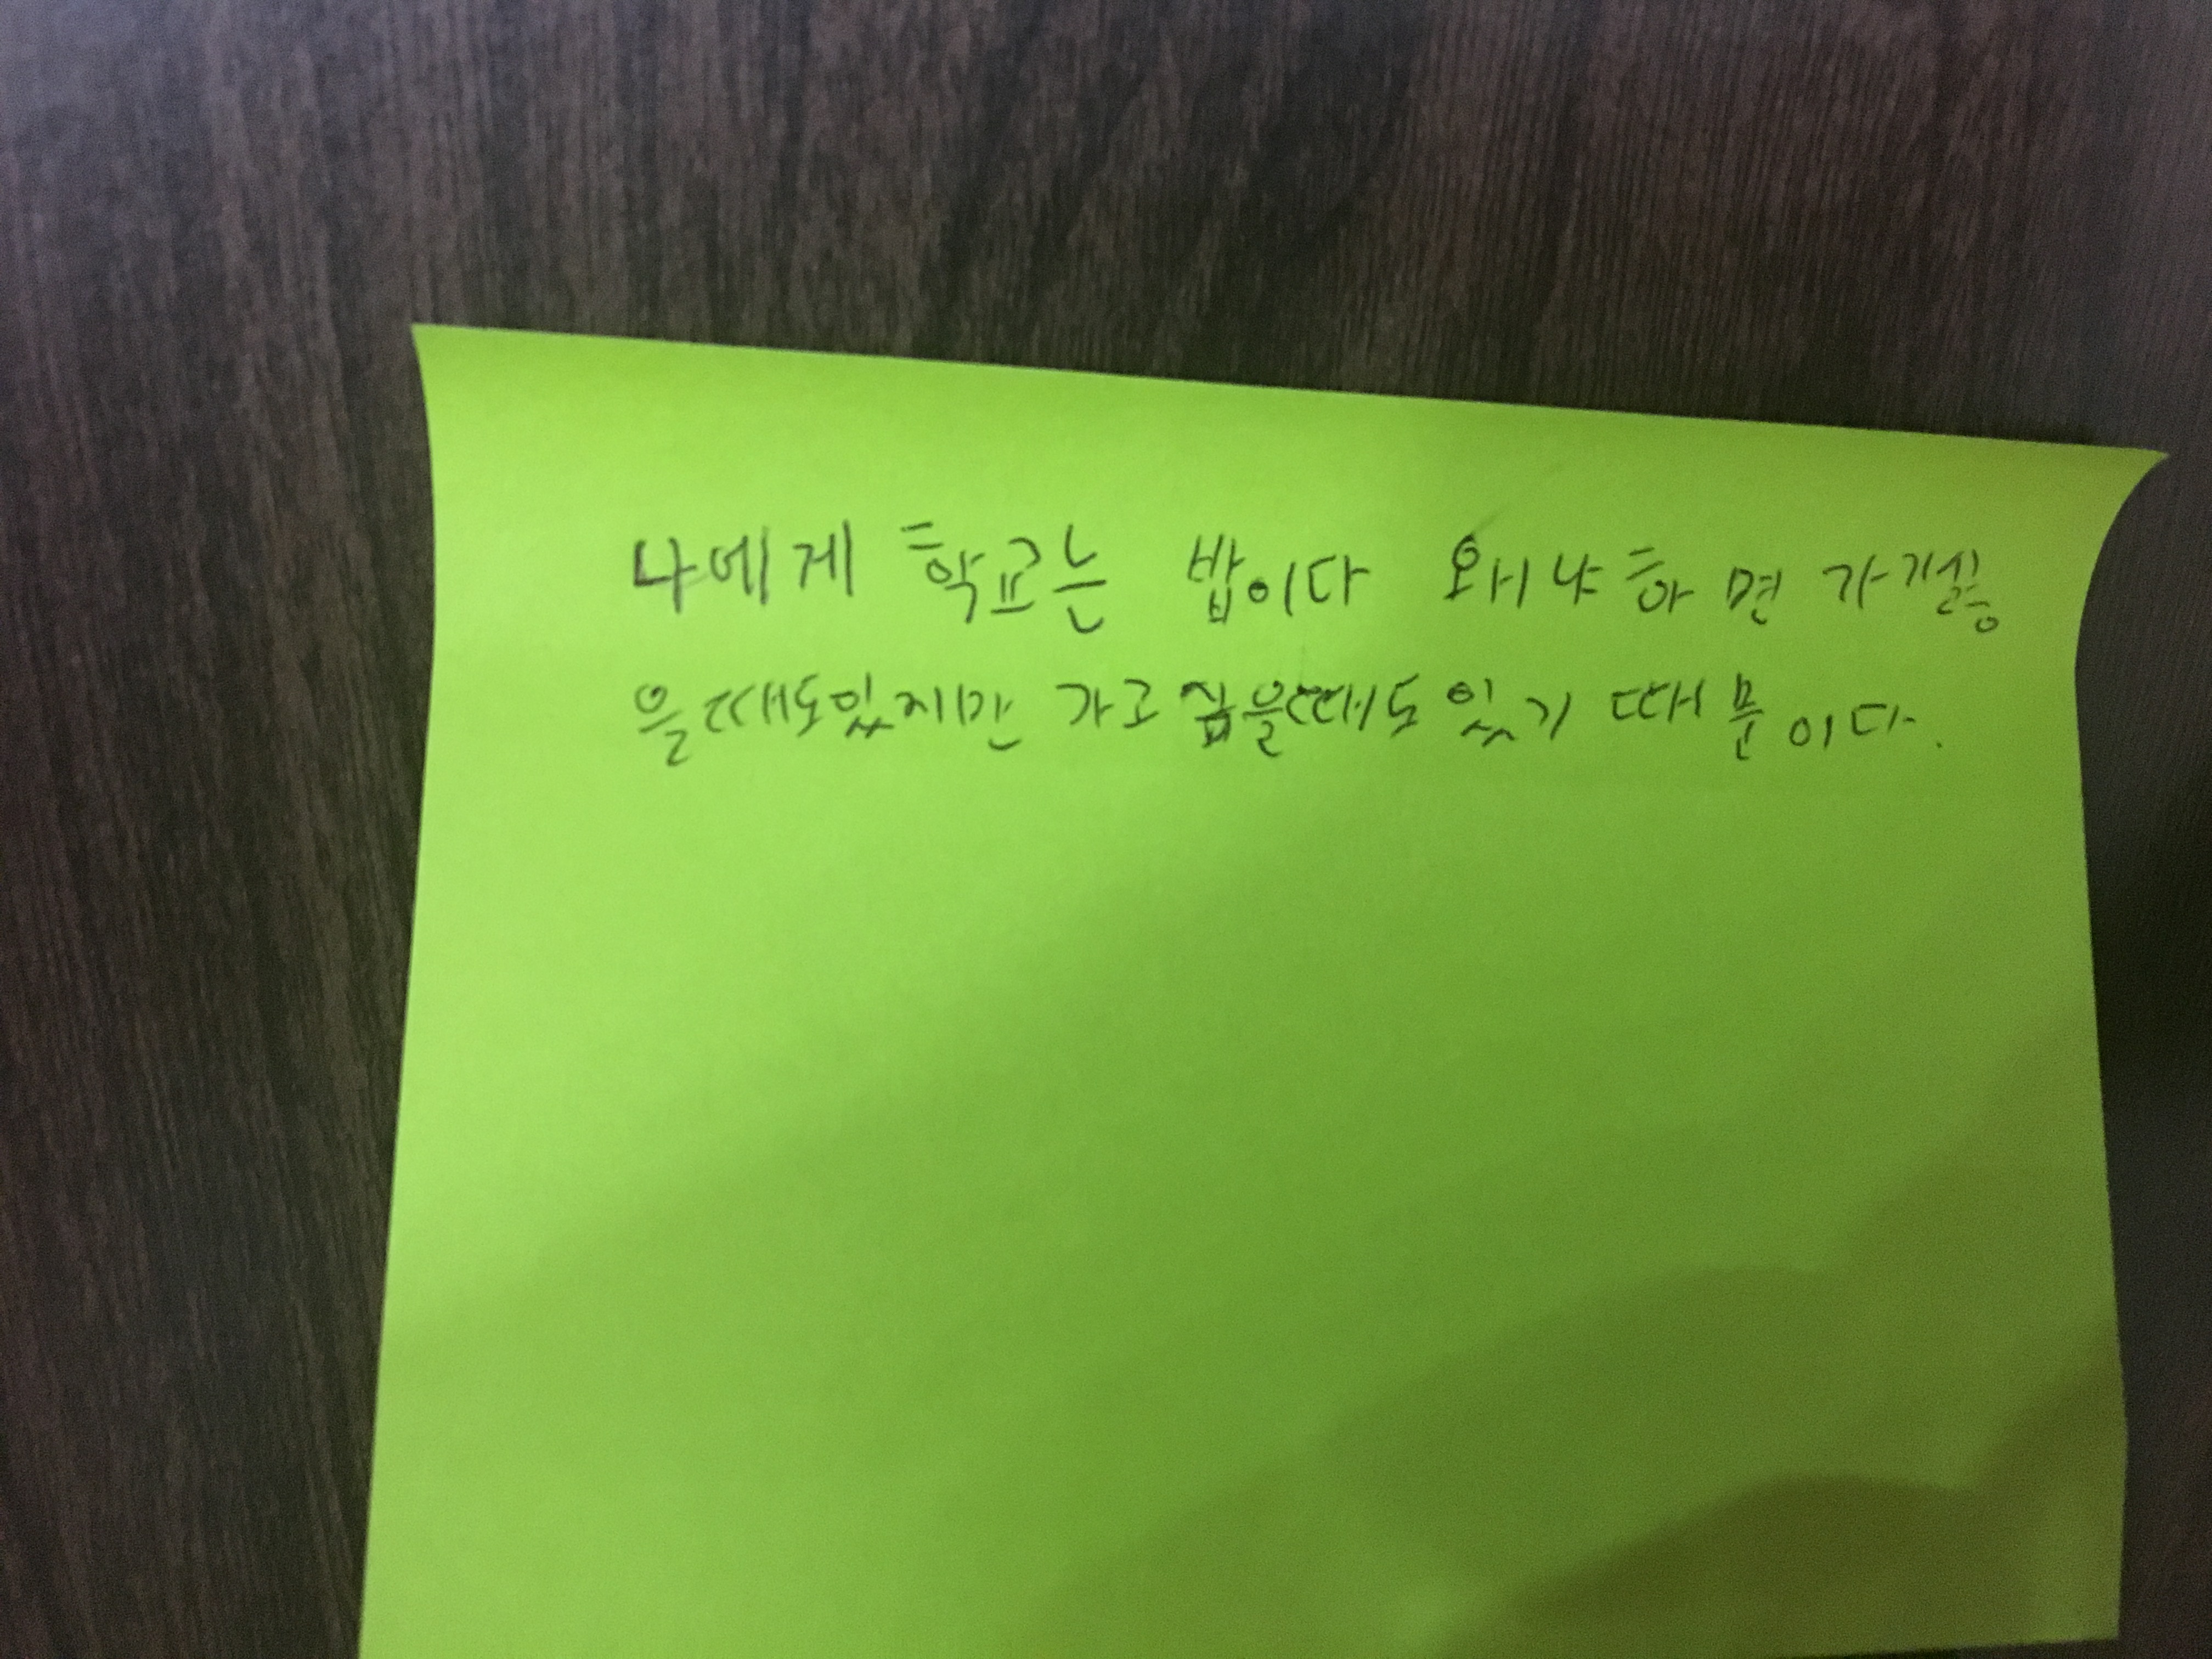 나에게 학교는 밥이다 왜냐하면 가기싫
을때도있지만 가고싶을때도있기 때문이다.